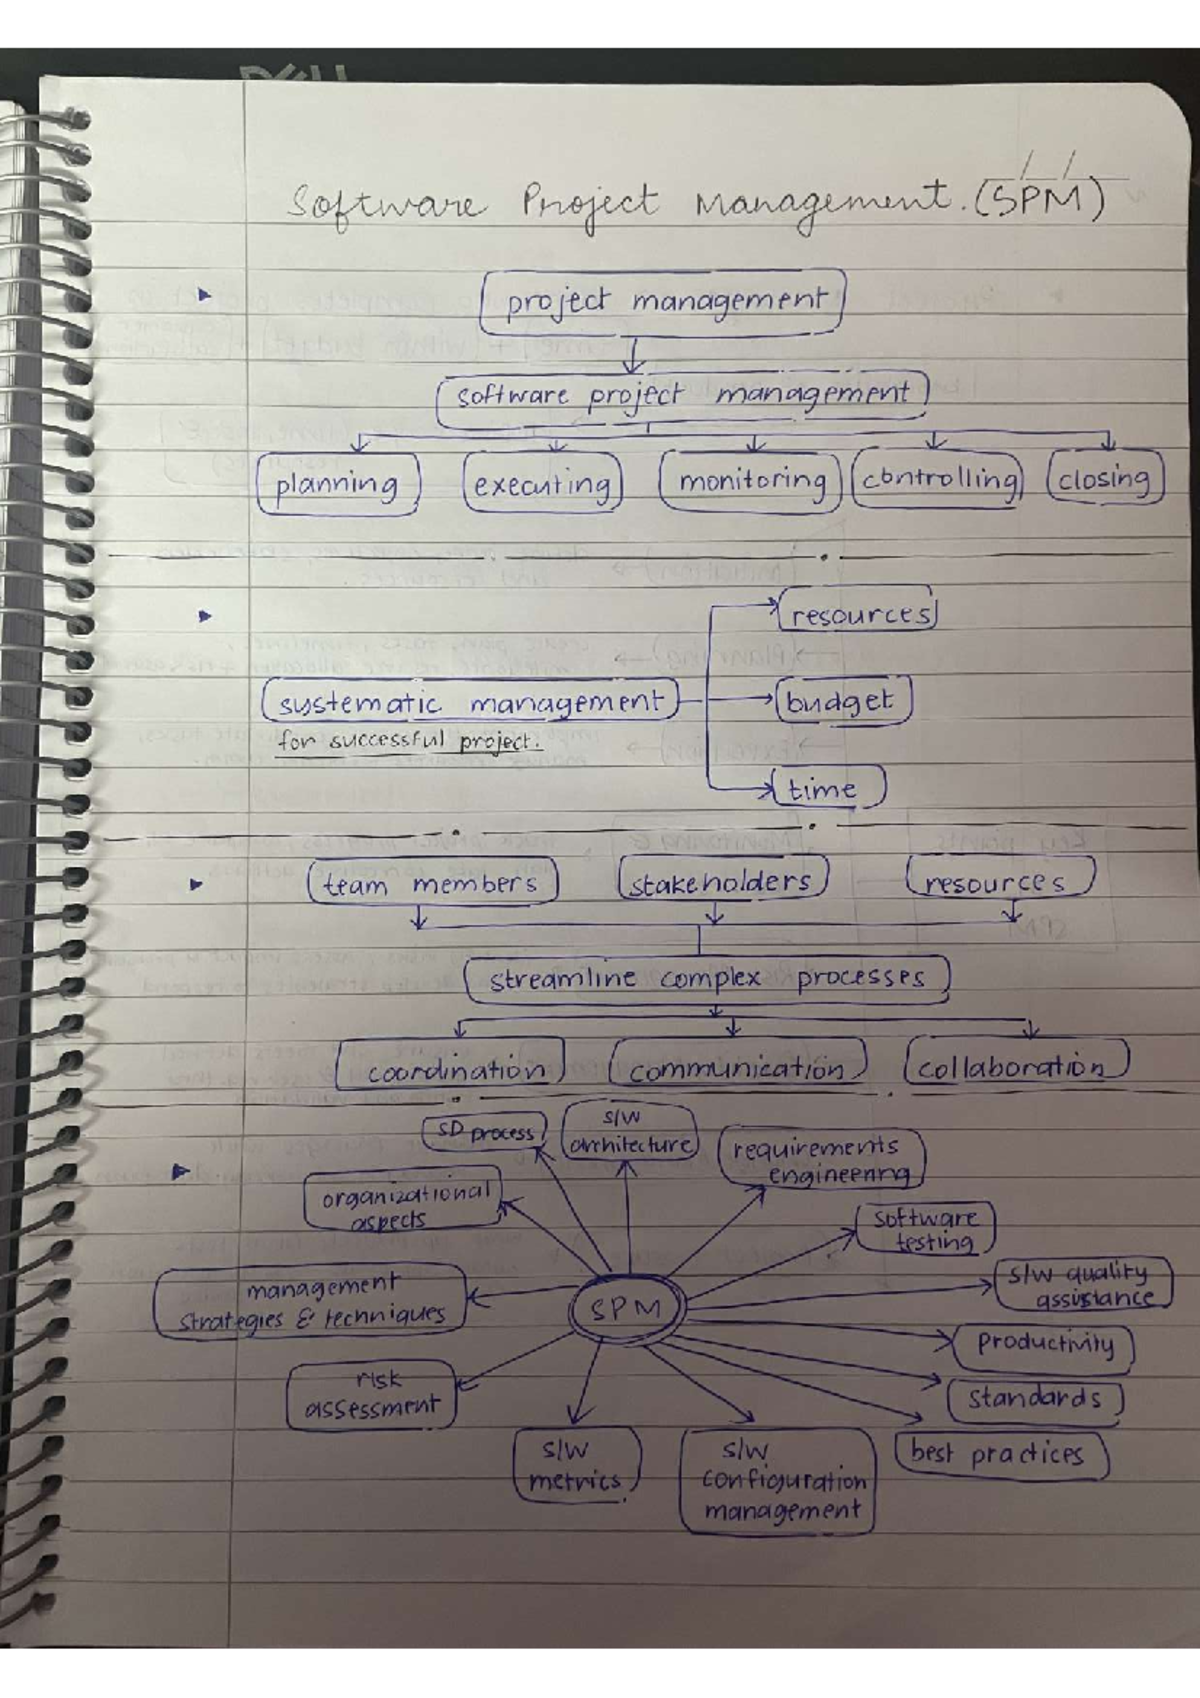 DELL
Software Project Management. (SPM)
project management
software project management
planning executing monitoring controlling closing
resources
systematic management
budget
for successful project.
time
team members stakeholders resources
streamline complex processes
coordination communication collaboration
SD process
S/W
architecture
requirements
engineering
organizational
aspects
software
testing
management
strategies & techniques
SPM
S/W quality
assistance
productivity
risk
assessment
standards
S/W
metrics
S/W
configuration
management
best practices